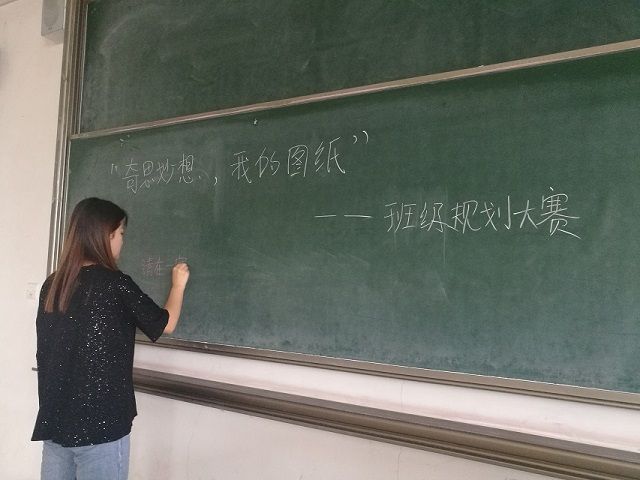 “奇思妙想，我的图纸”
——班级规划大赛
请在一